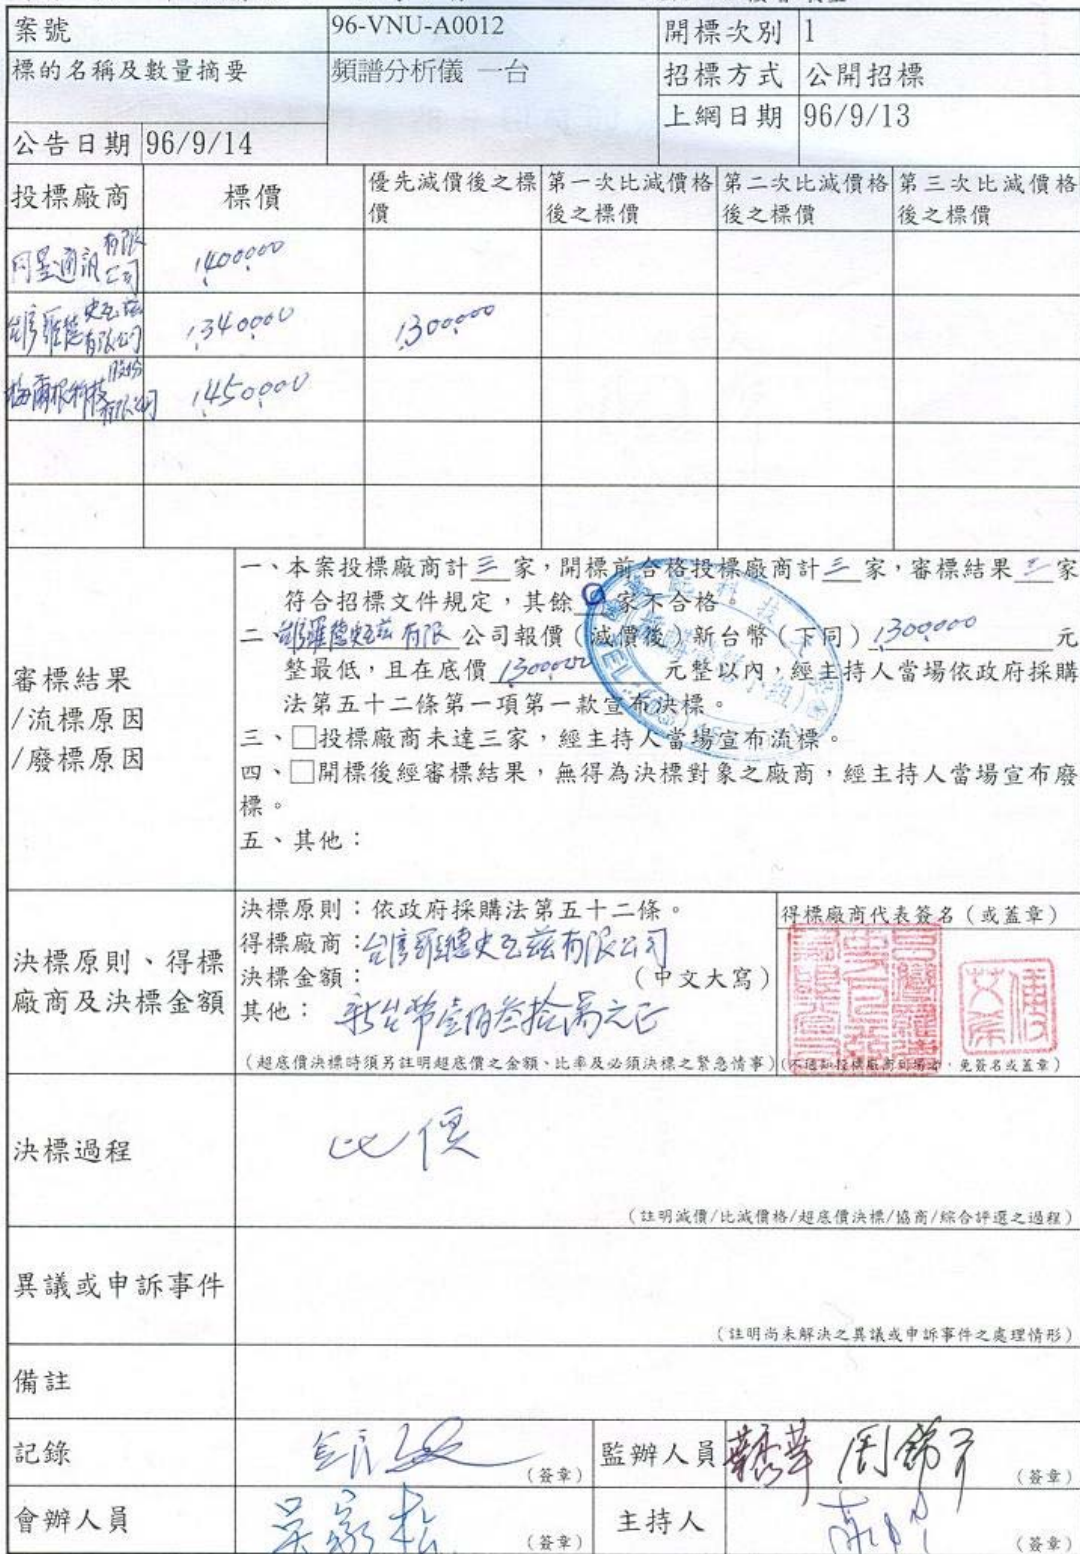 案號 96-VNU-A0012 開標次別 1
標的名稱及數量摘要 頻譜分析儀 一台 招標方式 公開招標
上網日期 96/9/13
公告日期 96/9/14
投標廠商 標價 優先減價後之標價 第一次比減價格後之標價 第二次比減價格後之標價 第三次比減價格後之標價
通訊有限公司 1,400,000
台灣羅德史瓦茲有限公司 1,340,000 1,300,000
梅爾根科技股份有限公司 1,450,000
審標結果
/流標原因
/廢標原因
一、本案投標廠商計三家，開標前合格投標廠商計三家，審標結果三家
符合招標文件規定，其餘0家不合格。
二、台灣羅德史瓦茲有限公司報價（減價後）新台幣（下同）1,300,000元
整最低，且在底價1,300,000元整以內，經主持人當場依政府採購
法第五十二條第一項第一款宣布決標。
三、□投標廠商未達三家，經主持人當場宣布流標。
四、□開標後經審標結果，無得為決標對象之廠商，經主持人當場宣布廢
標。
五、其他：
決標原則、得標
廠商及決標金額
決標原則：依政府採購法第五十二條。
得標廠商：台灣羅德史瓦茲有限公司
決標金額： （中文大寫）
其他： 新台幣壹佰叁拾萬元正
（超底價決標時須另註明超底價之金額、比率及必須決標之緊急情事）
得標廠商代表簽名（或蓋章）
（不通知投標廠商到場者，免簽名或蓋章）
決標過程 比價
（註明減價/比減價格/超底價決標/協商/綜合評選之過程）
異議或申訴事件
（註明尚未解決之異議或申訴事件之處理情形）
備註
記錄 （簽章） 監辦人員 （簽章）
會辦人員 吳家松 （簽章） 主持人 （簽章）